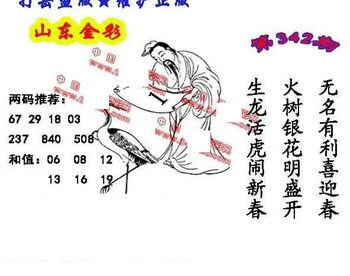 打击盗版 维护正版
山东金彩
第342期
两码推荐:
67 29 18 03
237 840 508
和值: 06 08 12
13 16 19
1
无名有利喜迎春
火树银花明盛开
生龙活虎闹新春